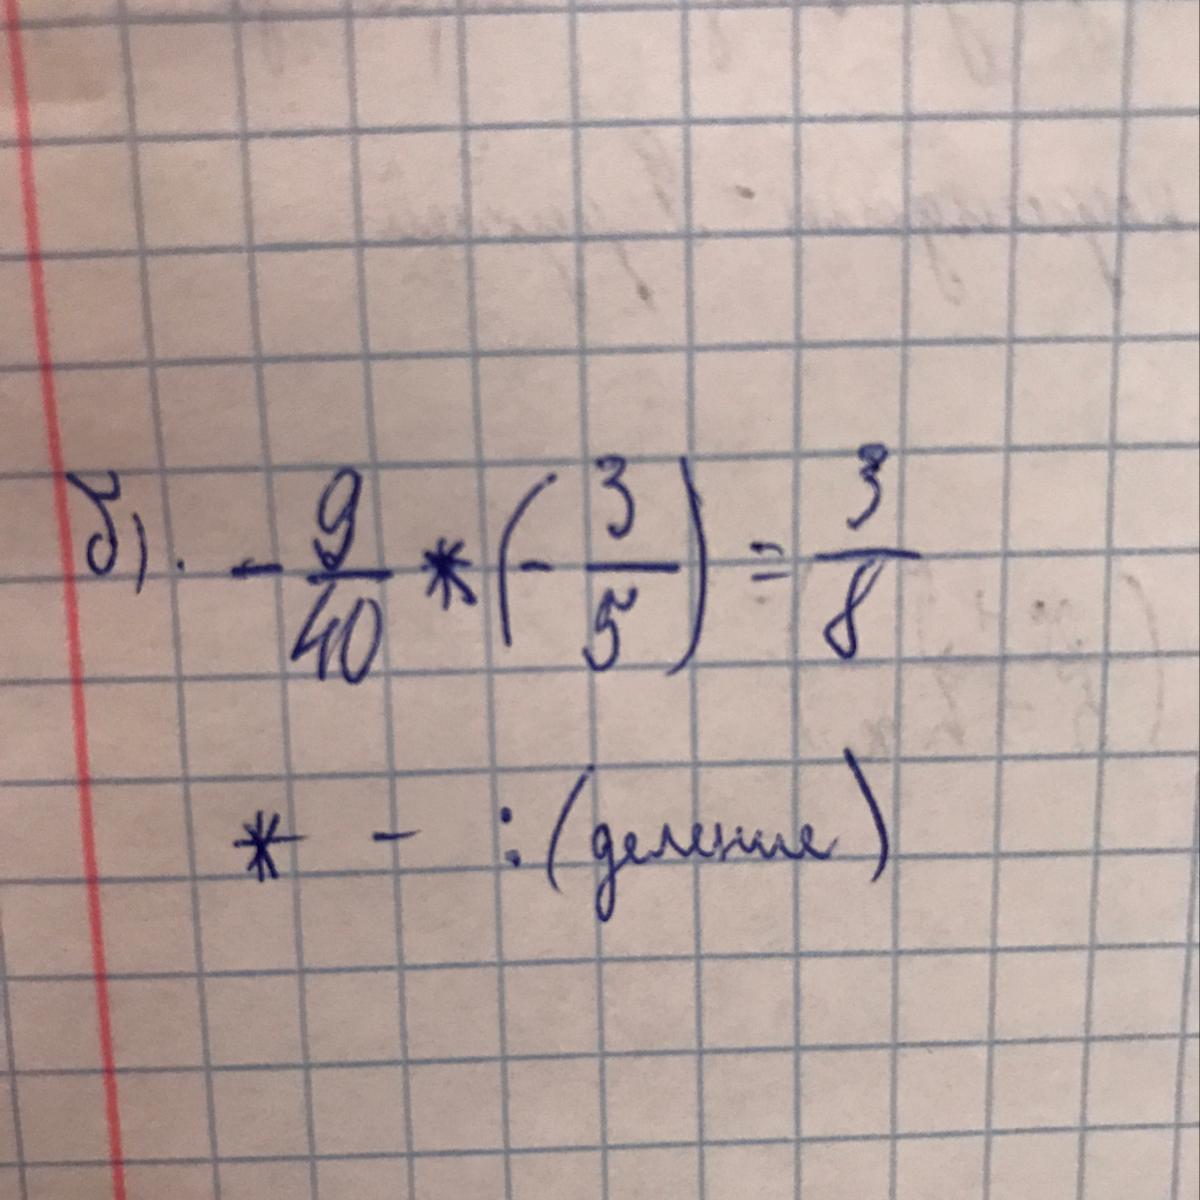 б). - 9/40 * (- 3/5) = 3/8
* - : (деление)